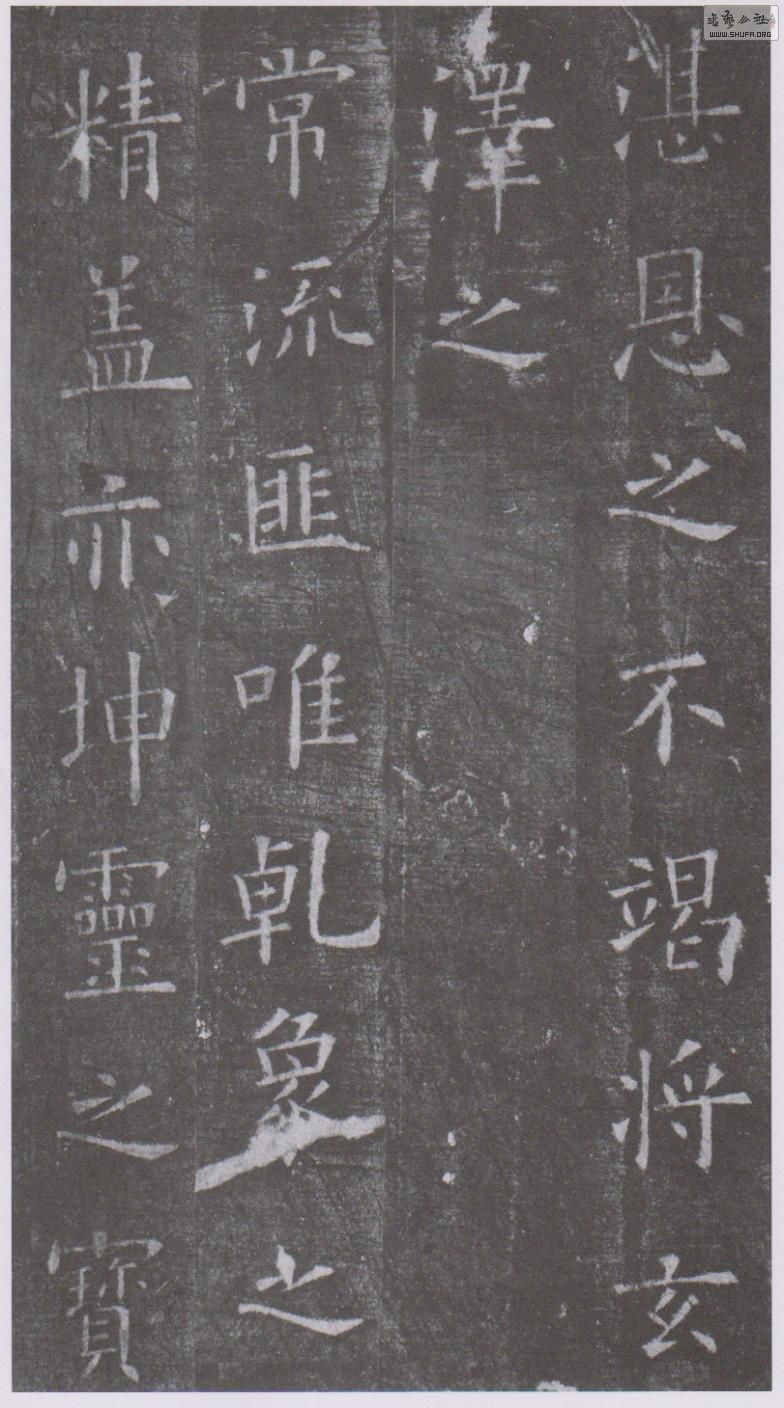 湛恩之不竭将玄
澤之
常流匪唯乹象之
精盖亦坤靈之寶
书艺公社
WWW.SHUFA.ORG